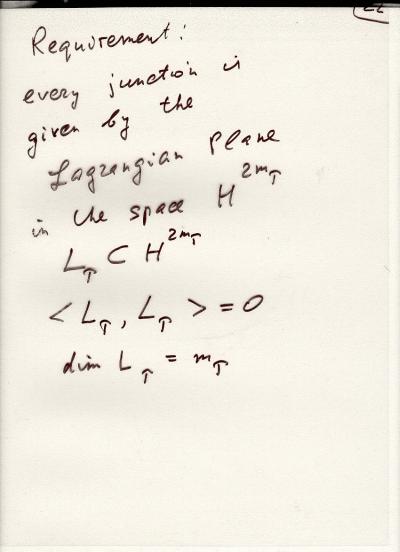 22
Requirement:
every junction is
given by the
Lagrangian plane
in the space H^{2m_T}
L_T ⊂ H^{2m_T}
< L_T , L_T > = 0
dim L_T = m_T